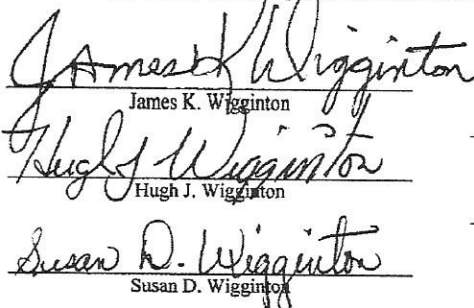 James K Wigginton
James K. Wigginton
Hugh J Wigginton
Hugh J. Wigginton
Susan D. Wigginton
Susan D. Wigginton